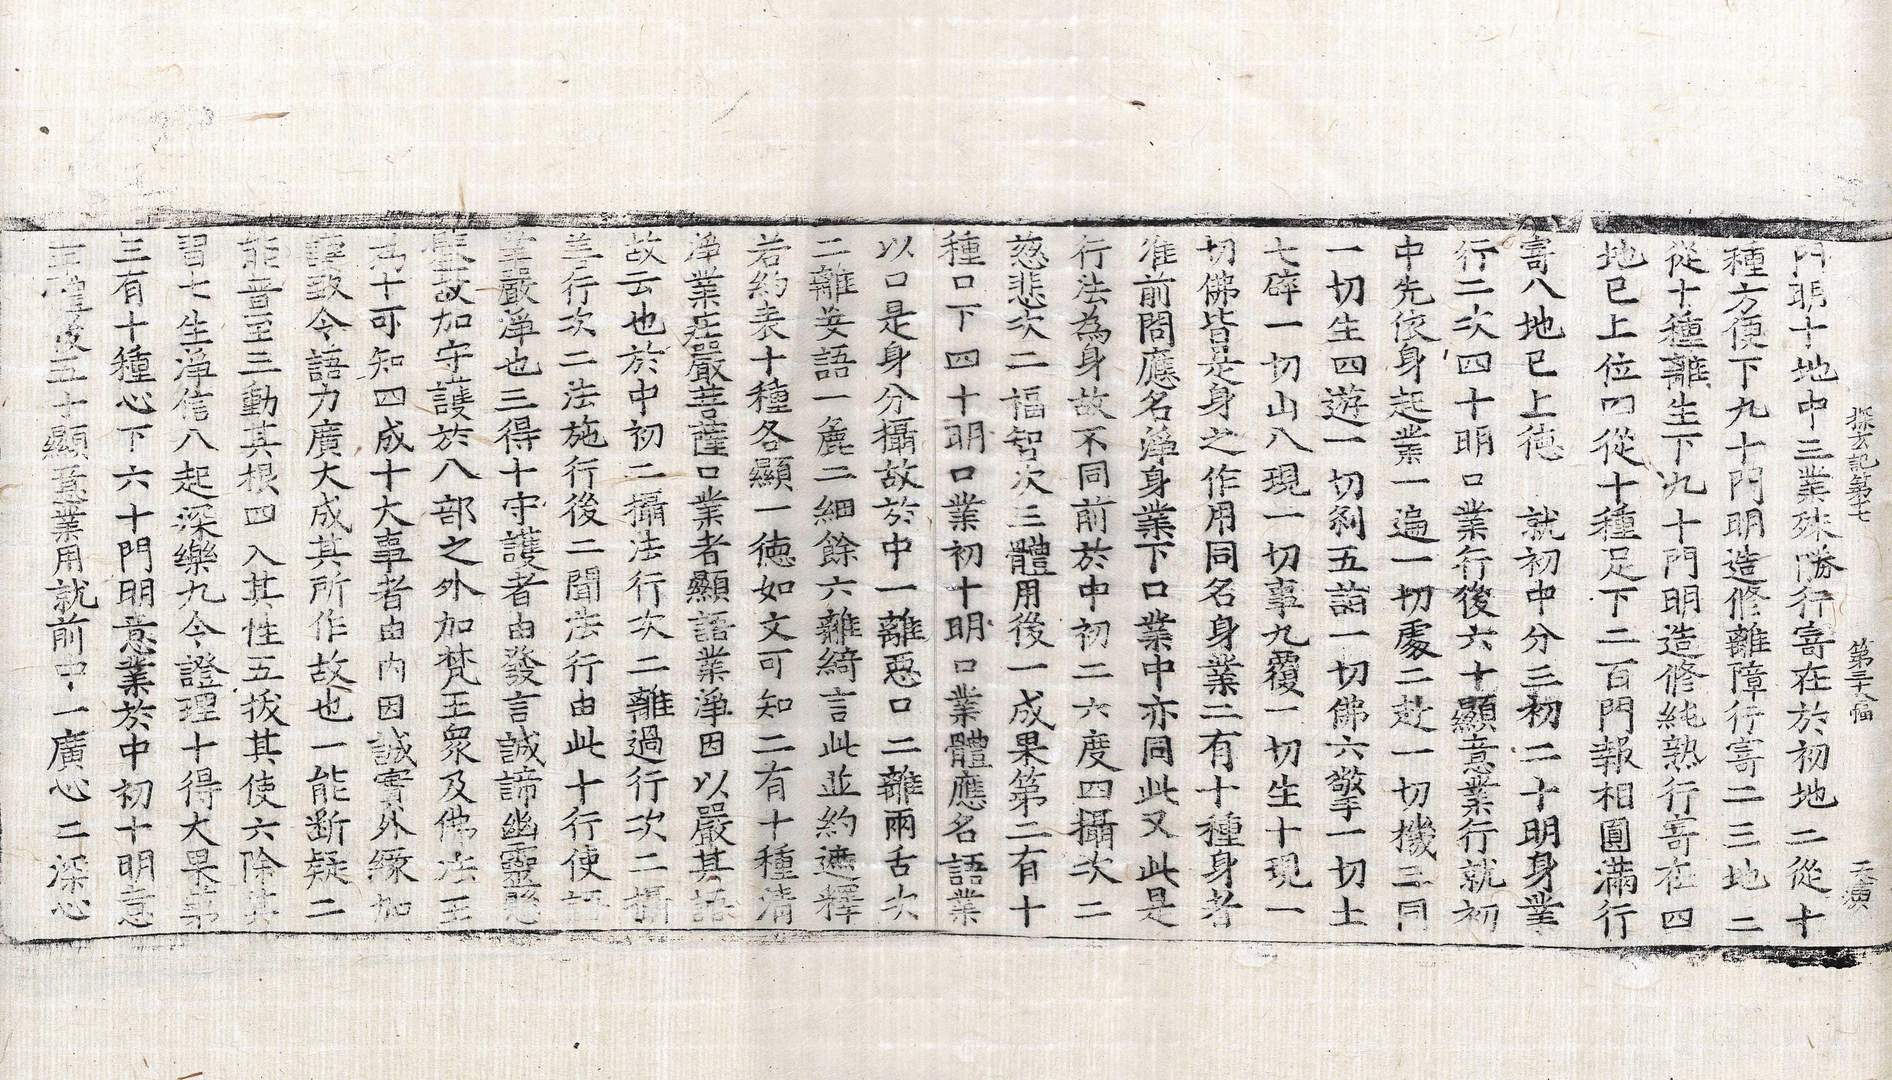 探玄記第十七 第三十八幅 天廣
門明十地中三業殊勝行寄在於初地二從十
種方便下九十門明造修離障行寄二三地二
從十種離生下九十門明造修純熟行寄在四
地已上位四從十種足下二百門報相圓滿行
寄八地已上德 就初中分三初二十明身業
行二次四十明口業行後六十顯意業行就初
中先依身起業一遍一切處二赴一切機三同
一切生四遊一切剎五詣一切佛六擎一切土
七碎一切山八現一切事九覆一切生十現一
切佛皆是身之作用同名身業二有十種身者
准前問應名淨身業下口業中亦同此又此是
行法為身故不同前於中初二六度四攝次二
慈悲次二福智次三體用後一成果第二有十
種口下四十明口業初十明口業體應名語業
以口是身分攝故於中一離惡口二離兩舌次
二離妄語一麁二細餘六離綺言此並約遮釋
若約表十種各顯一德如文可知二有十種清
淨業莊嚴菩薩口業者顯語業淨因以嚴其語
故云也於中初二攝法行次二離過行次二攝
善行次二法施行後二聞法行由此十行使語
業嚴淨也三得十守護者由發言誠諦幽靈懸
鑒故加守護於八部之外加梵王眾及佛法王
為十可知四成十大事者由內因誠實外緣加
護致令語力廣大成其所作故也一能斷疑二
能普至三動其根四入其性五拔其使六除其
習七生淨信八起深樂九令證理十得大果第
三有十種心下六十門明意業於中初十明意
業體後五十顯意業用就前中一廣心二深心